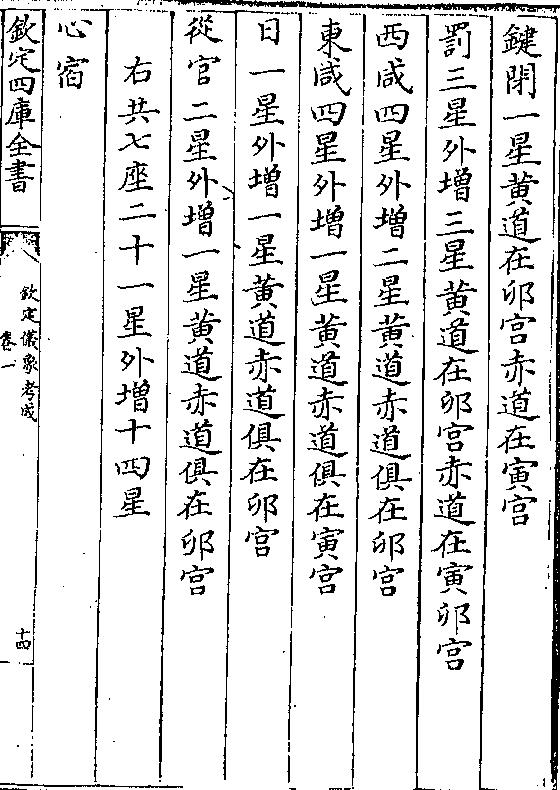 鍵閉一星黄道在卯宫赤道在寅宫
罰三星外增三星黄道在卯宫赤道在寅卯宫
西咸四星外增二星黄道赤道俱在卯宫
東咸四星外增一星黄道赤道俱在寅宫
日一星外增一星黄道赤道俱在卯宫
從官二星外增一星黄道赤道俱在卯宫
右共七座二十一星外增十四星
心宿
欽定四庫全書
欽定儀象考成
卷一
十四